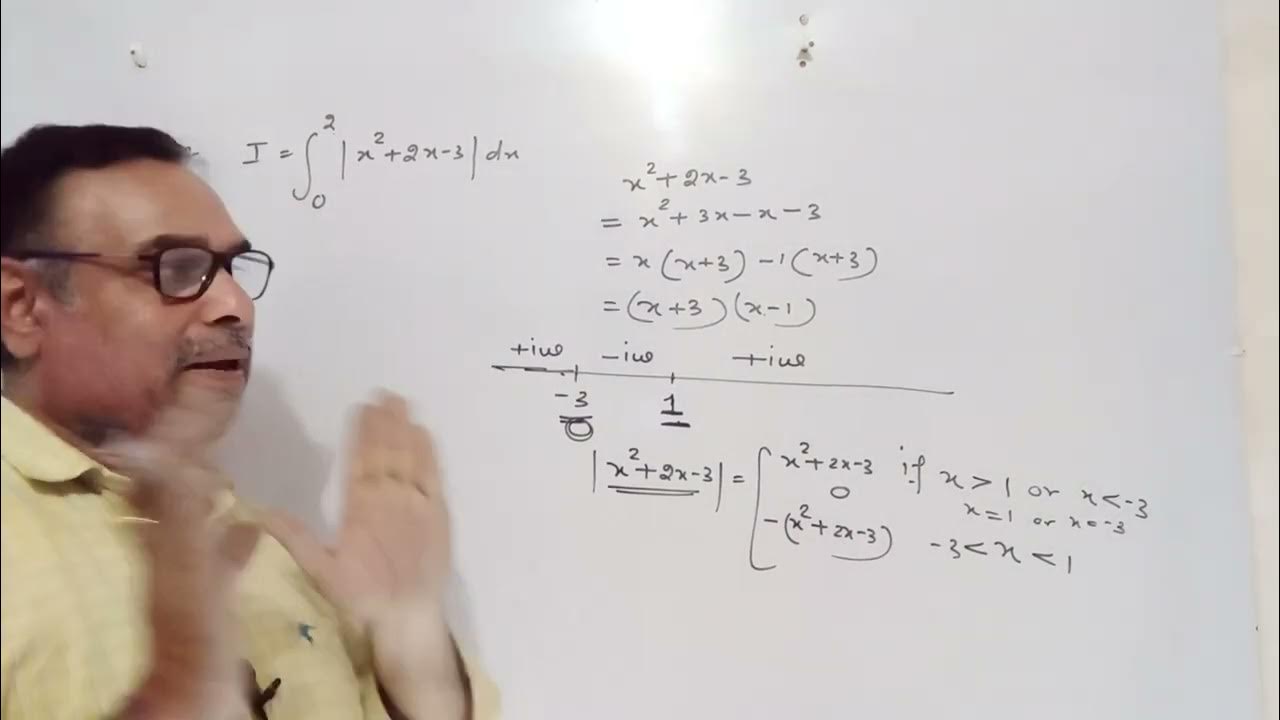 I = ∫₀² |x²+2x-3| dx
x²+2x-3
= x²+3x-x-3
= x(x+3)-1(x+3)
= (x+3)(x-1)
+ive -ive +ive
-3 1
0
|x²+2x-3| = { x²+2x-3 if x>1 or x<-3
0 x=1 or x=-3
-(x²+2x-3) -3<x<1